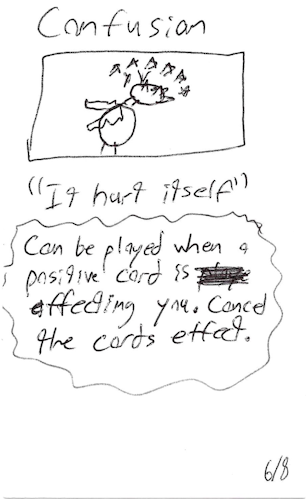 Confusion
"It hurt itself"
Can be played when a
positive card is
affecting you. Cancel
the cards effect.
6/8